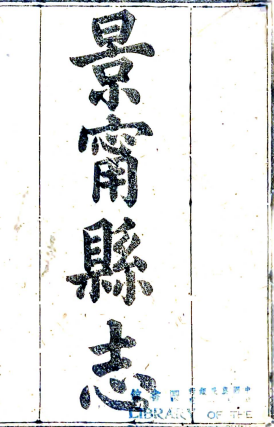 景甯縣志
LIBRARY OF THE